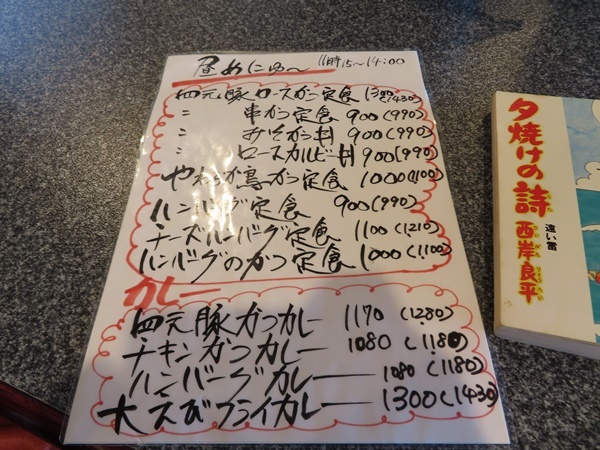 昼めにゅ〜 11時15〜14:00
四元豚ロースかつ定食 1300(1430)
〃 串かつ定食 900(990)
〃 みそかつ丼 900(990)
〃 ロースカルビー丼 900(990)
やわらか鳥かつ定食 1000(1100)
ハンバーグ定食 900(990)
チーズハンバーグ定食 1100(1210)
ハンバーグのかつ定食 1000(1100)
カレー
四元豚かつカレー 1170(1280)
チキンかつカレー 1080(1180)
ハンバーグカレー 1080(1180)
大えびフライカレー 1300(1430)
夕焼けの詩
遠い雷
西岸良平